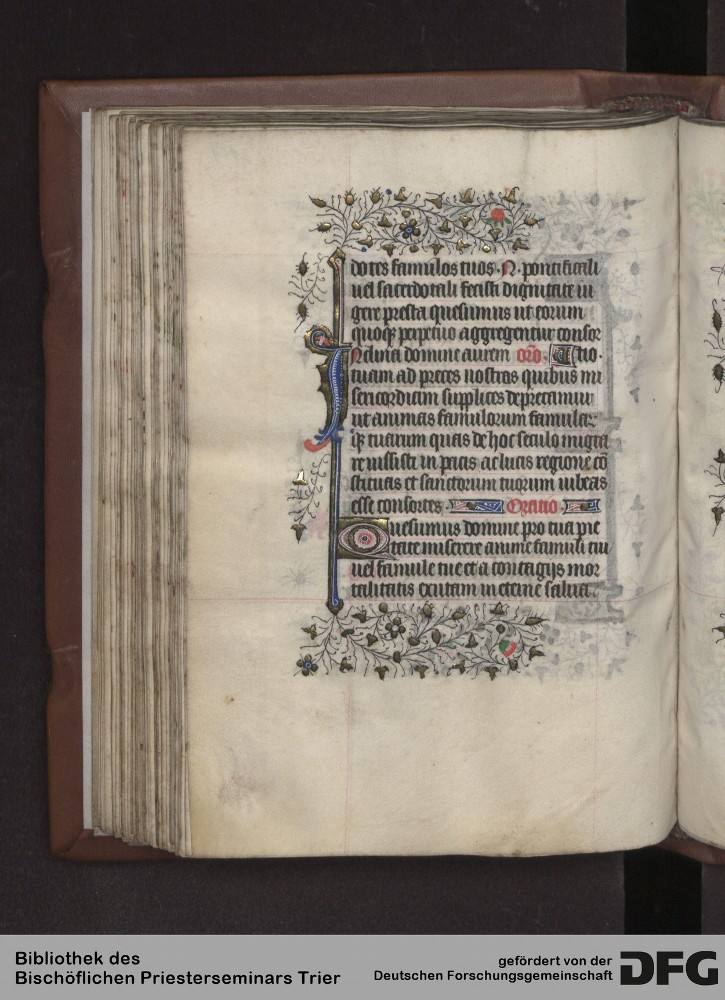 dotes famulos tuos · N · pontificali
uel sacerdotali fecisti dignitate ui
gere presta quesumus ut eorum
quoqꝫ perpetuo aggregentur consor
Nclina domine aurem orō · tio ·
tuam ad preces nostras quibus mi
sericordiam supplices deprecamur
ut animas famulorum famular
qꝫ tuarum quas de hoc seculo migra
re iussisti in pacis ac lucis regione cō
stituas et sanctorum tuorum iubeas
esse consortes · Oratio ·
Quesumus domine pro tua pie
tate miserere anime famuli tui
uel famule tue et a contagijs mor
talitatis exutam in eterne salua
Bibliothek des
Bischöflichen Priesterseminars Trier
gefördert von der
Deutschen Forschungsgemeinschaft
DFG